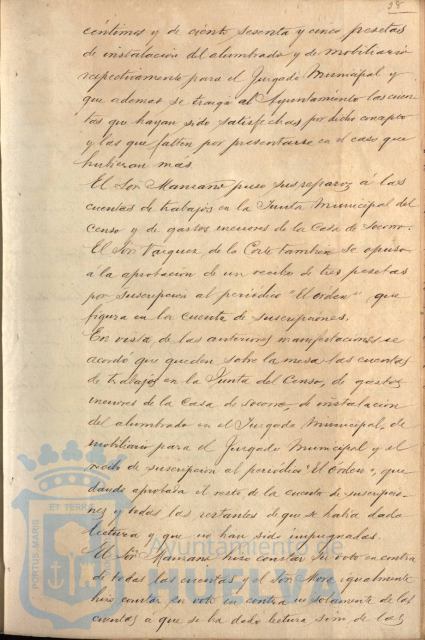 céntimos y de ciento sesenta y cinco pesetas
de instalación del alumbrado y de mobiliario
respectivamente para el Juzgado Municipal y
que ademas se traiga al Ayuntamiento las cuen-
tas que hayan sido satisfechas por dicho concepto
y las que falten por presentarse en el caso que
hubieran mas.
El Sor Manzano puso sus reparos á las
cuentas de trabajos en la Junta Municipal del
Censo y de gastos menores de la Casa de Socorro.
El Sor Vazquez de la Corte tambien se opuso
a la aprobación de un recibo de tres pesetas
por suscripcion al periodico "El Orden", que
figura en la cuenta de suscripciones.
En vista de las anteriores manifestaciones se
acordó que queden sobre la mesa las cuentas
de trabajos en la Junta del Censo, de gastos
menores de la Casa de Socorro, de instalacion
del alumbrado en el Juzgado Municipal, de
mobiliario para el Juzgado Municipal y el
recibo de suscripción al periodico "El Orden", que
dando aprobada el resto de la cuenta de suscripcio-
nes y todas las restantes de que se habia dado
lectura y que no han sido impugnadas.
El Sor Manzano hizo constar su voto en contra
de todas las cuentas y el Sor Mora igualmente
hizo constar su voto en contra no solamente de las
cuentas a que se ha dado lectura sino de las
Ayuntamiento de
HUELVA
PORTUS MARIS
ET TERRAE